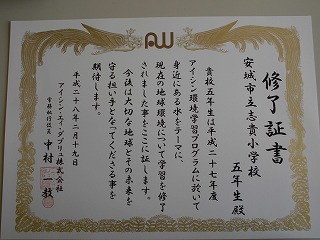 AW
修了証書
安城市立志貴小学校
五年生殿
貴校五年生は平成二十七年度
アイシン環境学習プログラムに於いて
身近にある水をテーマに、
現在の地球環境について学習を修了
されました事をここに証します。
今後は大切な地球とその未来を
守る担い手となってくださる事を
期待します。
平成二十八年二月十九日
アイシン・エィ・ダブリュ株式会社
常務執行役員 中村 一敏